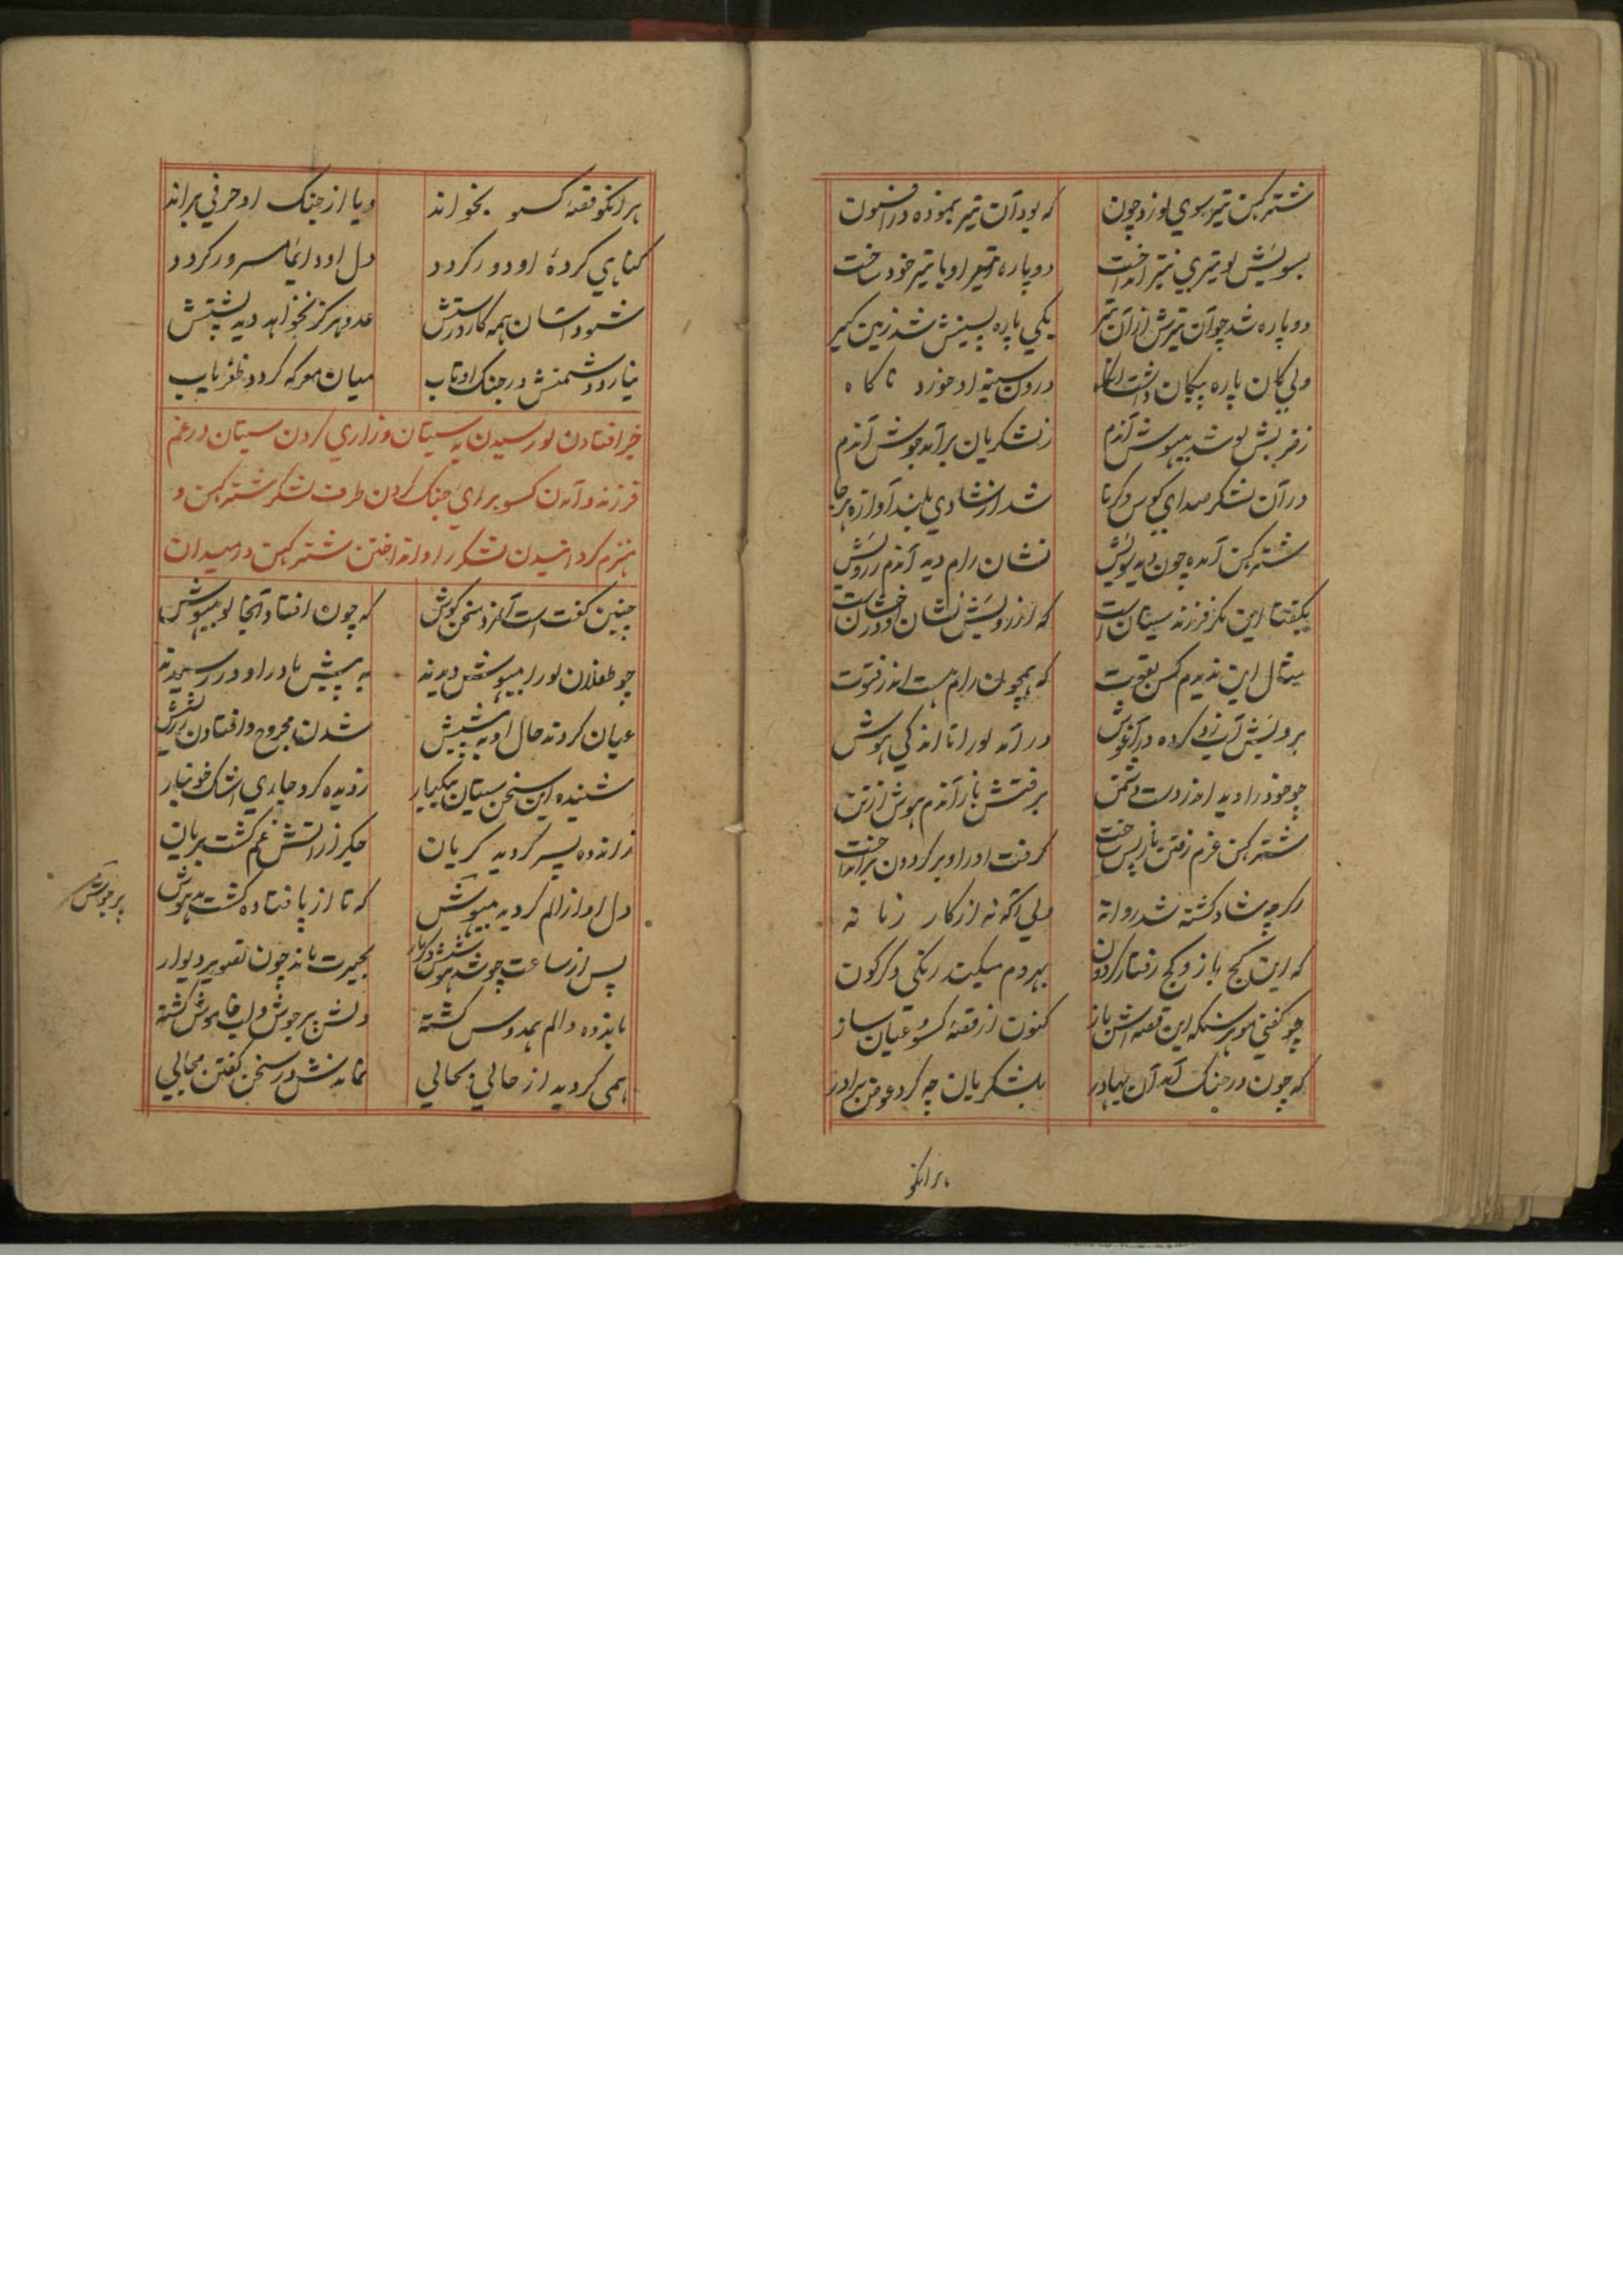 شترکهن تیر سوی لو زد چون که بود آن تیر بنموده در افسون
بسویش لو تیری نیز انداخت دوپاره تیر او با تیر خود ساخت
دوپاره شد چو آن تیرش از آن تیر یکی پاره پسینش شد زمین کیر
ولی کان پاره پیکان داشت درون سینه او خورد ناکاه
ز ضربش لو شد بیهوش آندم ز لشکریان برآمد جوش آندم
در آن لشکر صدای کوس و کرنا شد از شادی بلند آوازه هرجا
شترکهن آمده چون دید سویش نشان رام دید آندم ز رویش
بکفتا این مکر فرزند سیتان است که از رویش نشان او درخشان است
مثال این ندیدم کس بقوت که همچون رام هست اندر فتوت
برویش آب زد کرده در آغوش درآمد لو را تا اندکی هوش
چو خود را دید اندر دست دشمن برفتش باز آندم هوش از تن
شترکهن عزم رفتن باز پس ساخت کرفت او را و بر کردون برانداخت
اکرچه شاد کشته شد روانه ولی آکه نه از کار زمانه
که این کج باز و کج رفتار کردون بهردم میکند رنکی دکرکون
چو کفتی هوبر سنکه این قصه اش باز کنون از قصهٔ کسو عیان ساز
که چون در جنک آمد آن بهادر بلشکریان چه کرد عوض برادر
هرانکو
هرانکو قصهٔ کسو بخواند ویا از جنک او حرفی براند
کناهی کردهٔ او دور کردد دل او دایما مسرور کردد
شود آسان همه کار درستش عدو هرکز نخواهد دید پشتش
نیارد دشمنش در جنک او تاب میان معرکه کردد ظفریاب
خبر افتادن لو رسیدن به سیتان و زاری کردن سیتان در غم
فرزند و آمدن کسو برای جنک کردن طرف لشکر شترکهن و
هزم کردانیدن لشکر را و انداختن شترکهن در میدان
چنین کفت است آنمرد سخن کوش که چون افتاد آنجا لو بیهوش
چو طفلان لو را بیهوش دیدند به پیش مادر او در رسیدند
عیان کردند حال او به پیشش شدن مجروح و افتادن
شنیده این سخن سیتان بیکبار ز دیده کرد جاری اشک خونبار
ز اندوه پسر کردید کریان جکر از آتش غم کشت بریان
دل او از الم کردید بیهوش که تا از پا فتاده کشت مدهوش
پرجوش
پس از ساعت چو شد هوشش دکربار بحیرت ماند چون تصویر دیوار
باندوه والم همدوس کشته دلش پرجوش و لب خاموش کشته
همی کردید از حالی بحالی نماندش در سخن کفتن مجالی